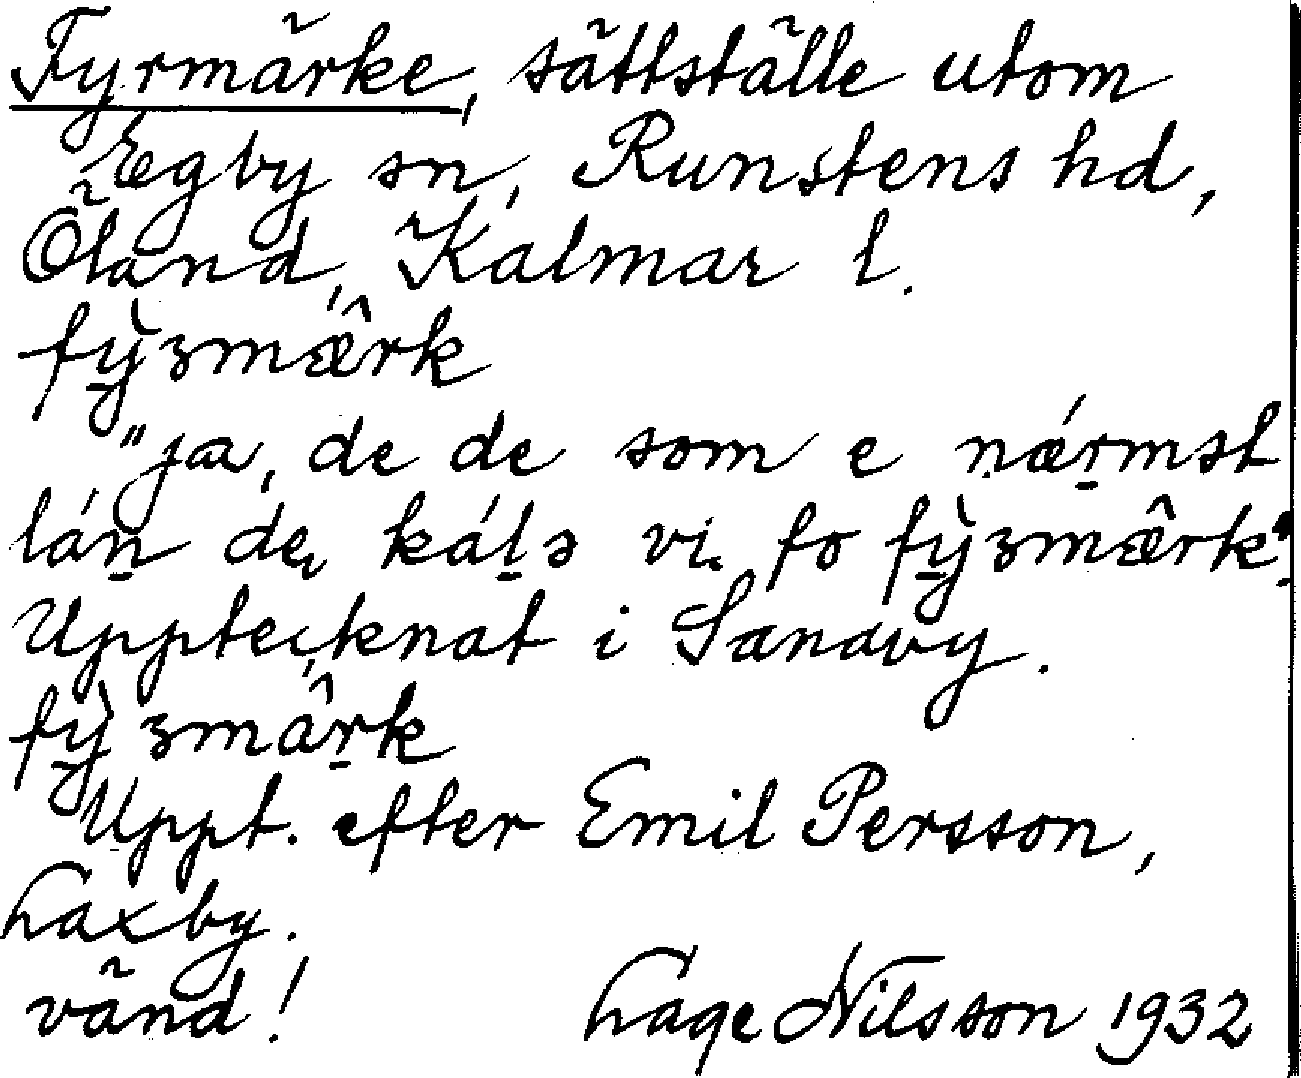 Fyrmärke, sättställe utom
Egby sn, Runstens hd,
Öland, Kalmar l.
fỳ̠ꜿmæ̂rk
"ja, de de som e nǽr̠mst
lán̠ de, kál̠ə vi. fo fỳ̠ꜿmæ̂rk".
Upptecknat i Sandby.
fỳ̠ꜿmâr̠k
Uppt. efter Emil Persson,
Laxby.
vänd! Lage Nilsson 1932